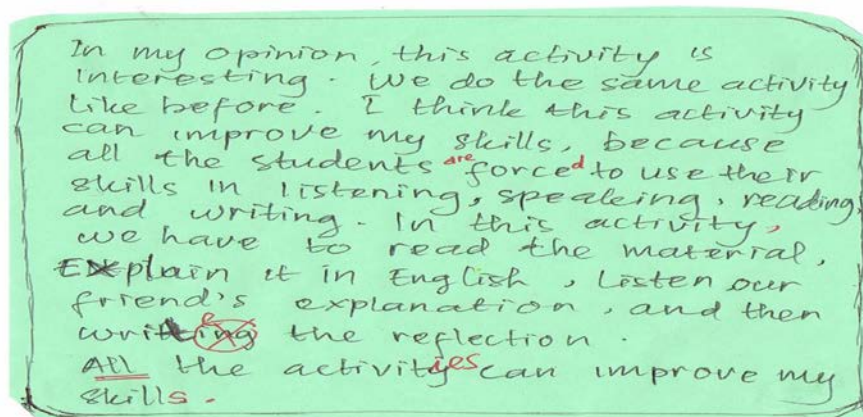 In my opinion, this activity is
interesting. We do the same activity
like before. I think this activity
can improve my skills, because
all the students are forced to use their
skills in listening, speaking, reading,
and writing. In this activity,
we have to read the material,
Explain it in English, Listen our
friend's explanation, and then
write the reflection.
All the activities can improve my
skills.